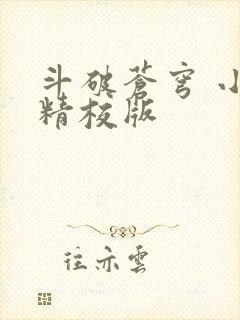 斗破苍穹 小
精校版
往亦雲